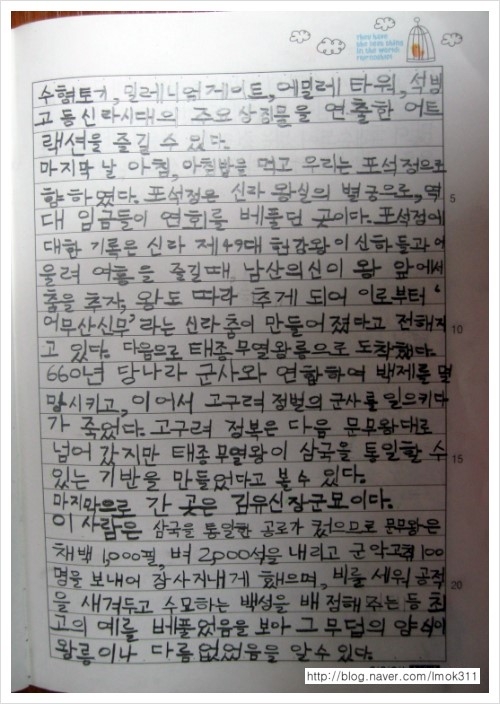 They have
the best thing
in the world
themselves
수혐토기, 밀레니엄게이트, 에밀레 타워, 석빙
고 등 신라시대의 주요 상징물을 연출한 어트
랙션을 즐길 수 있다.
마지막 날 아침, 아침밥을 먹고 우리는 포석정으로
향하였다. 포석정은 신라 왕실의 별궁으로, 역
대 임금들이 연회를 베풀던 곳이다. 포석정에
대한 기록은 신라 제49대 헌강왕이 신하들과 어
울려 여흥을 즐길때 남산의신이 왕 앞에서
춤을 추자, 왕도 따라 추게 되어 이로부터 '
어무산신무'라는 신라춤이 만들어졌다고 전해지
고 있다. 다음으로 태종무열왕릉으로 도착했다.
660년 당나라 군사와 연합하여 백제를 멸
망시키고, 이어서 고구려 정벌의 군사를 일으키다
가 죽었다. 고구려 정복은 다음 문무왕대로
넘어 갔지만 태종무열왕이 삼국을 통일할 수
있는 기반을 만들었다고 볼수 있다.
마지막으로 간 곳은 김유신장군묘이다.
이 사람은 삼국을 통일한 공로가 컸으므로 문무왕은
채백 1,000필, 벼 2,000석을 내리고 군악고적 100
명을 보내어 장사지내게 했으며, 비를 세워 공적
을 새겨두고 수묘하는 백성을 배정해 주는 등 최
고의 예를 베풀었음을 보아 그 무덤의 양식이
왕릉이나 다름 없었음을 알수 있다.
5
10
15
20
http://blog.naver.com/lmok311